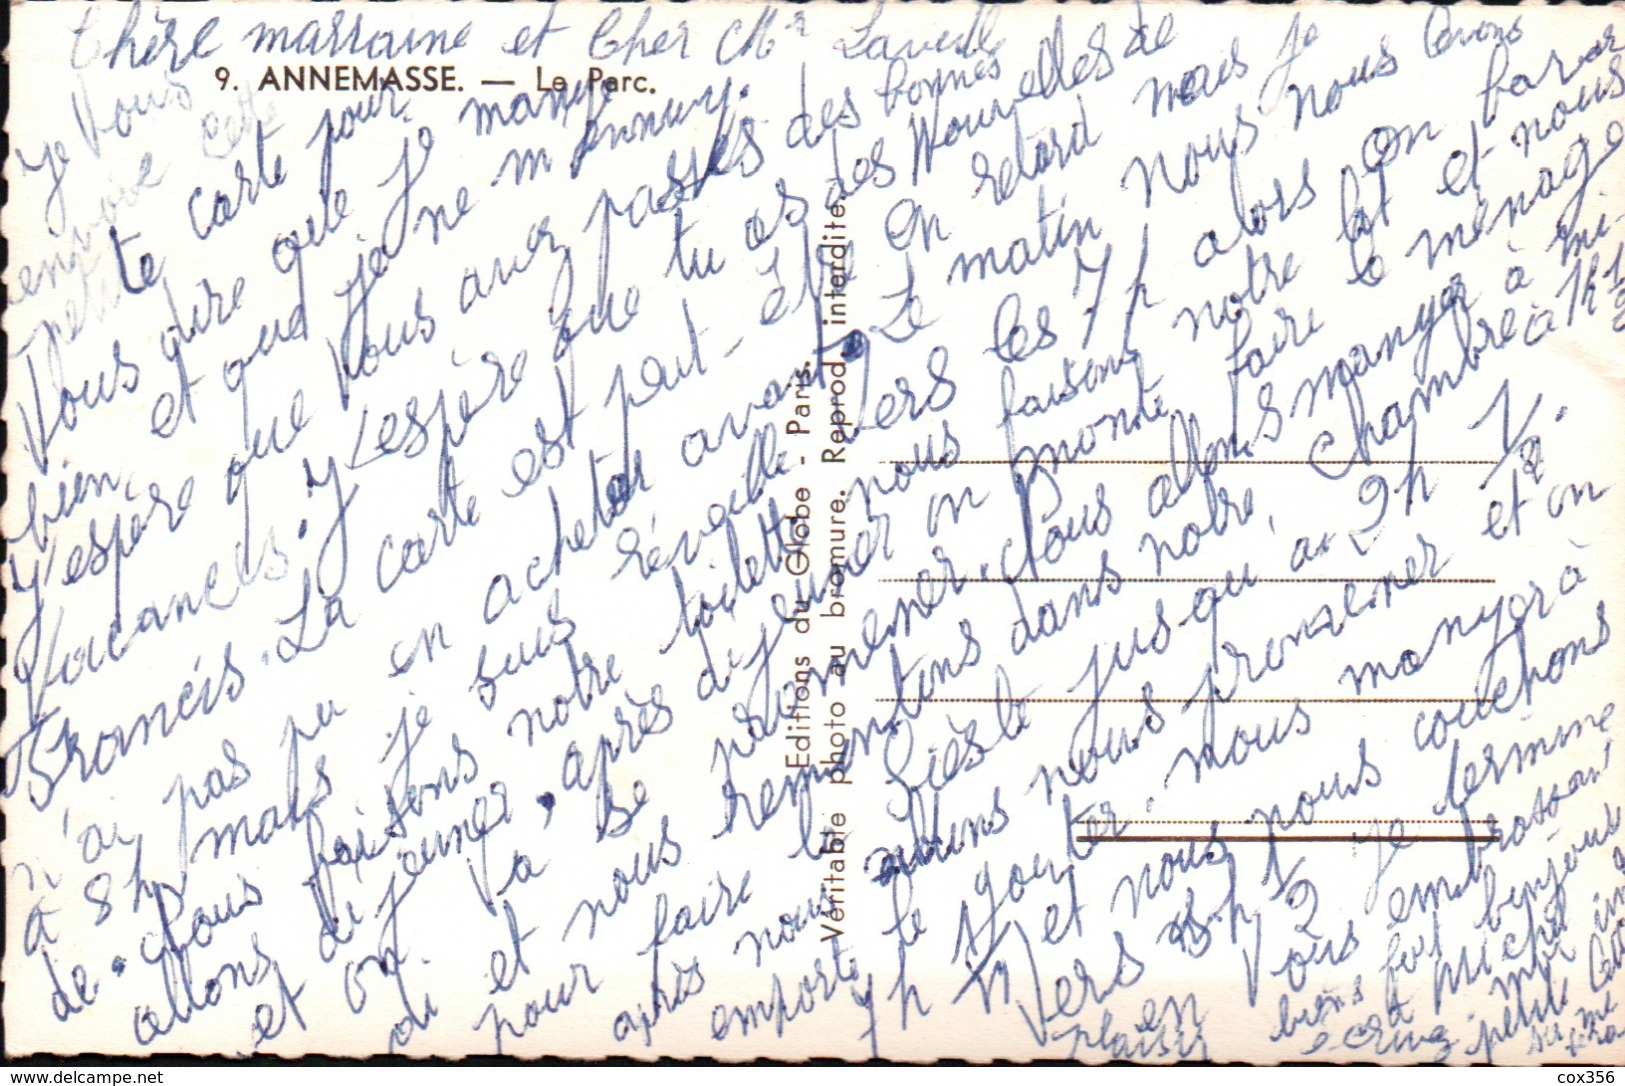 Chère marraine et Cher Mr
9. ANNEMASSE. — Le Parc.
Je vous envoie cette petite carte pour
vous dire que je mange
bien, et que je ne m'ennuy.
J'espère que vous avez passés des bonnes
vacances. J'espère que tu as des Nouvelles de
Francis. La carte est peut-être en retard mais je
n'ai pas pu en acheter avant. Le matin nous nous levons
à 8h mais je suis réveillé vers les 7h alors on bavar
de. Nous faisons notre toilette nous faisons notre lit et nous
allons déjeuner, après déjeuner on monte faire le ménage
et on va se promener. Nous allons manger à mi-
di et nous remontons dans notre chambre à 1h 1/2
pour faire la sieste jusqu'à 2h 1/2.
après nous allons nous promener et on
emporte le goûter. Nous mangeons à
7h et nous nous couchons
vers 8h 1/2 Je termine
en vous embrassant
bien fort bonjour
à Michel
plaisir
petite
Editions du Globe - Paris.
Véritable photo au bromure. Reprod. interdite.
cox356